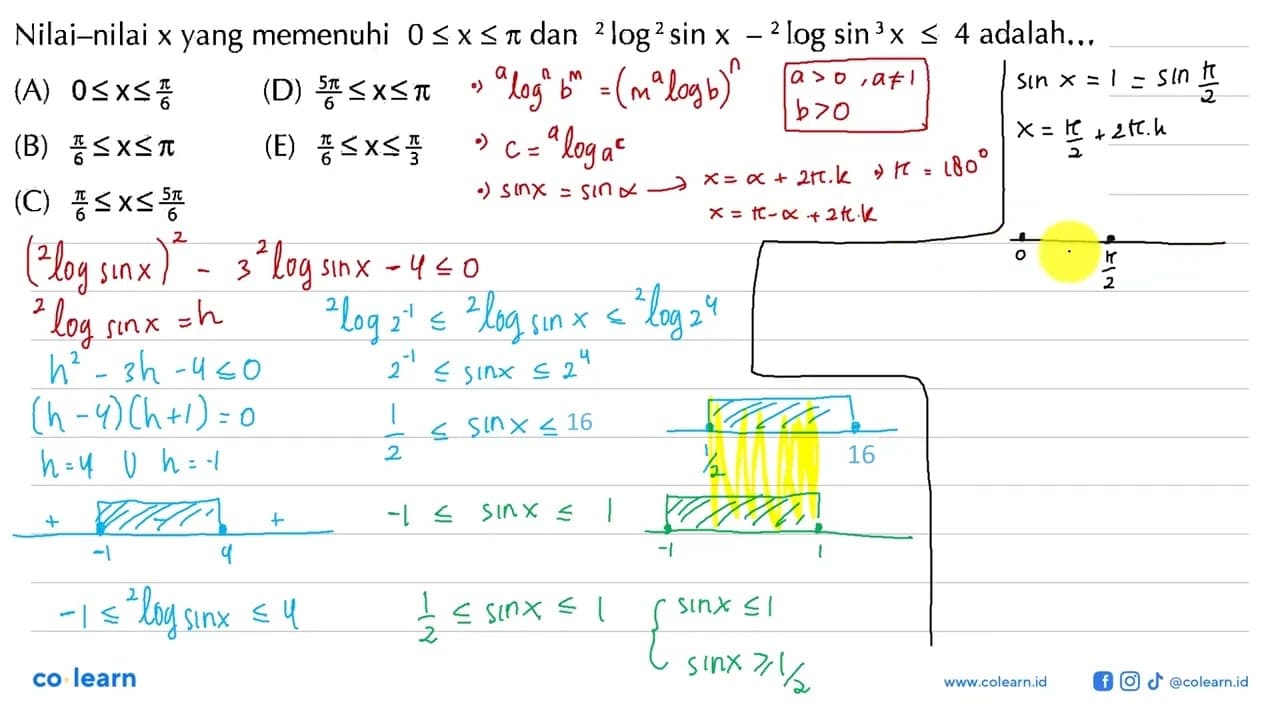 Nilai–nilai x yang memenuhi 0 ≤ x ≤ π dan ²log² sin x − ²log sin³ x ≤ 4 adalah...
(A) 0 ≤ x ≤ π/6
(B) π/6 ≤ x ≤ π
(C) π/6 ≤ x ≤ 5π/6
(D) 5π/6 ≤ x ≤ π
(E) π/6 ≤ x ≤ π/3
•) ᵃlogⁿ bᵐ = (m ᵃlog b)ⁿ
a > 0 , a ≠ 1
b > 0
•) c = ᵃlog aᶜ
•) sin x = sin α → x = α + 2π.k •) π = 180°
x = π − α + 2π.k
sin x = 1 = sin π/2
x = π/2 + 2π.k
0 π/2
(²log sin x)² − 3 ²log sin x − 4 ≤ 0
²log sin x = h
h² − 3h − 4 ≤ 0
(h − 4)(h + 1) = 0
h = 4 U h = −1
+ +
−1 4
−1 ≤ ²log sin x ≤ 4
²log 2⁻¹ ≤ ²log sin x ≤ ²log 2⁴
2⁻¹ ≤ sin x ≤ 2⁴
1/2 ≤ sin x ≤ 16
1/2 16
−1 ≤ sin x ≤ 1
−1 1
1/2 ≤ sin x ≤ 1
{ sin x ≤ 1
sin x ≥ 1/2
co learn
www.colearn.id
@colearn.id